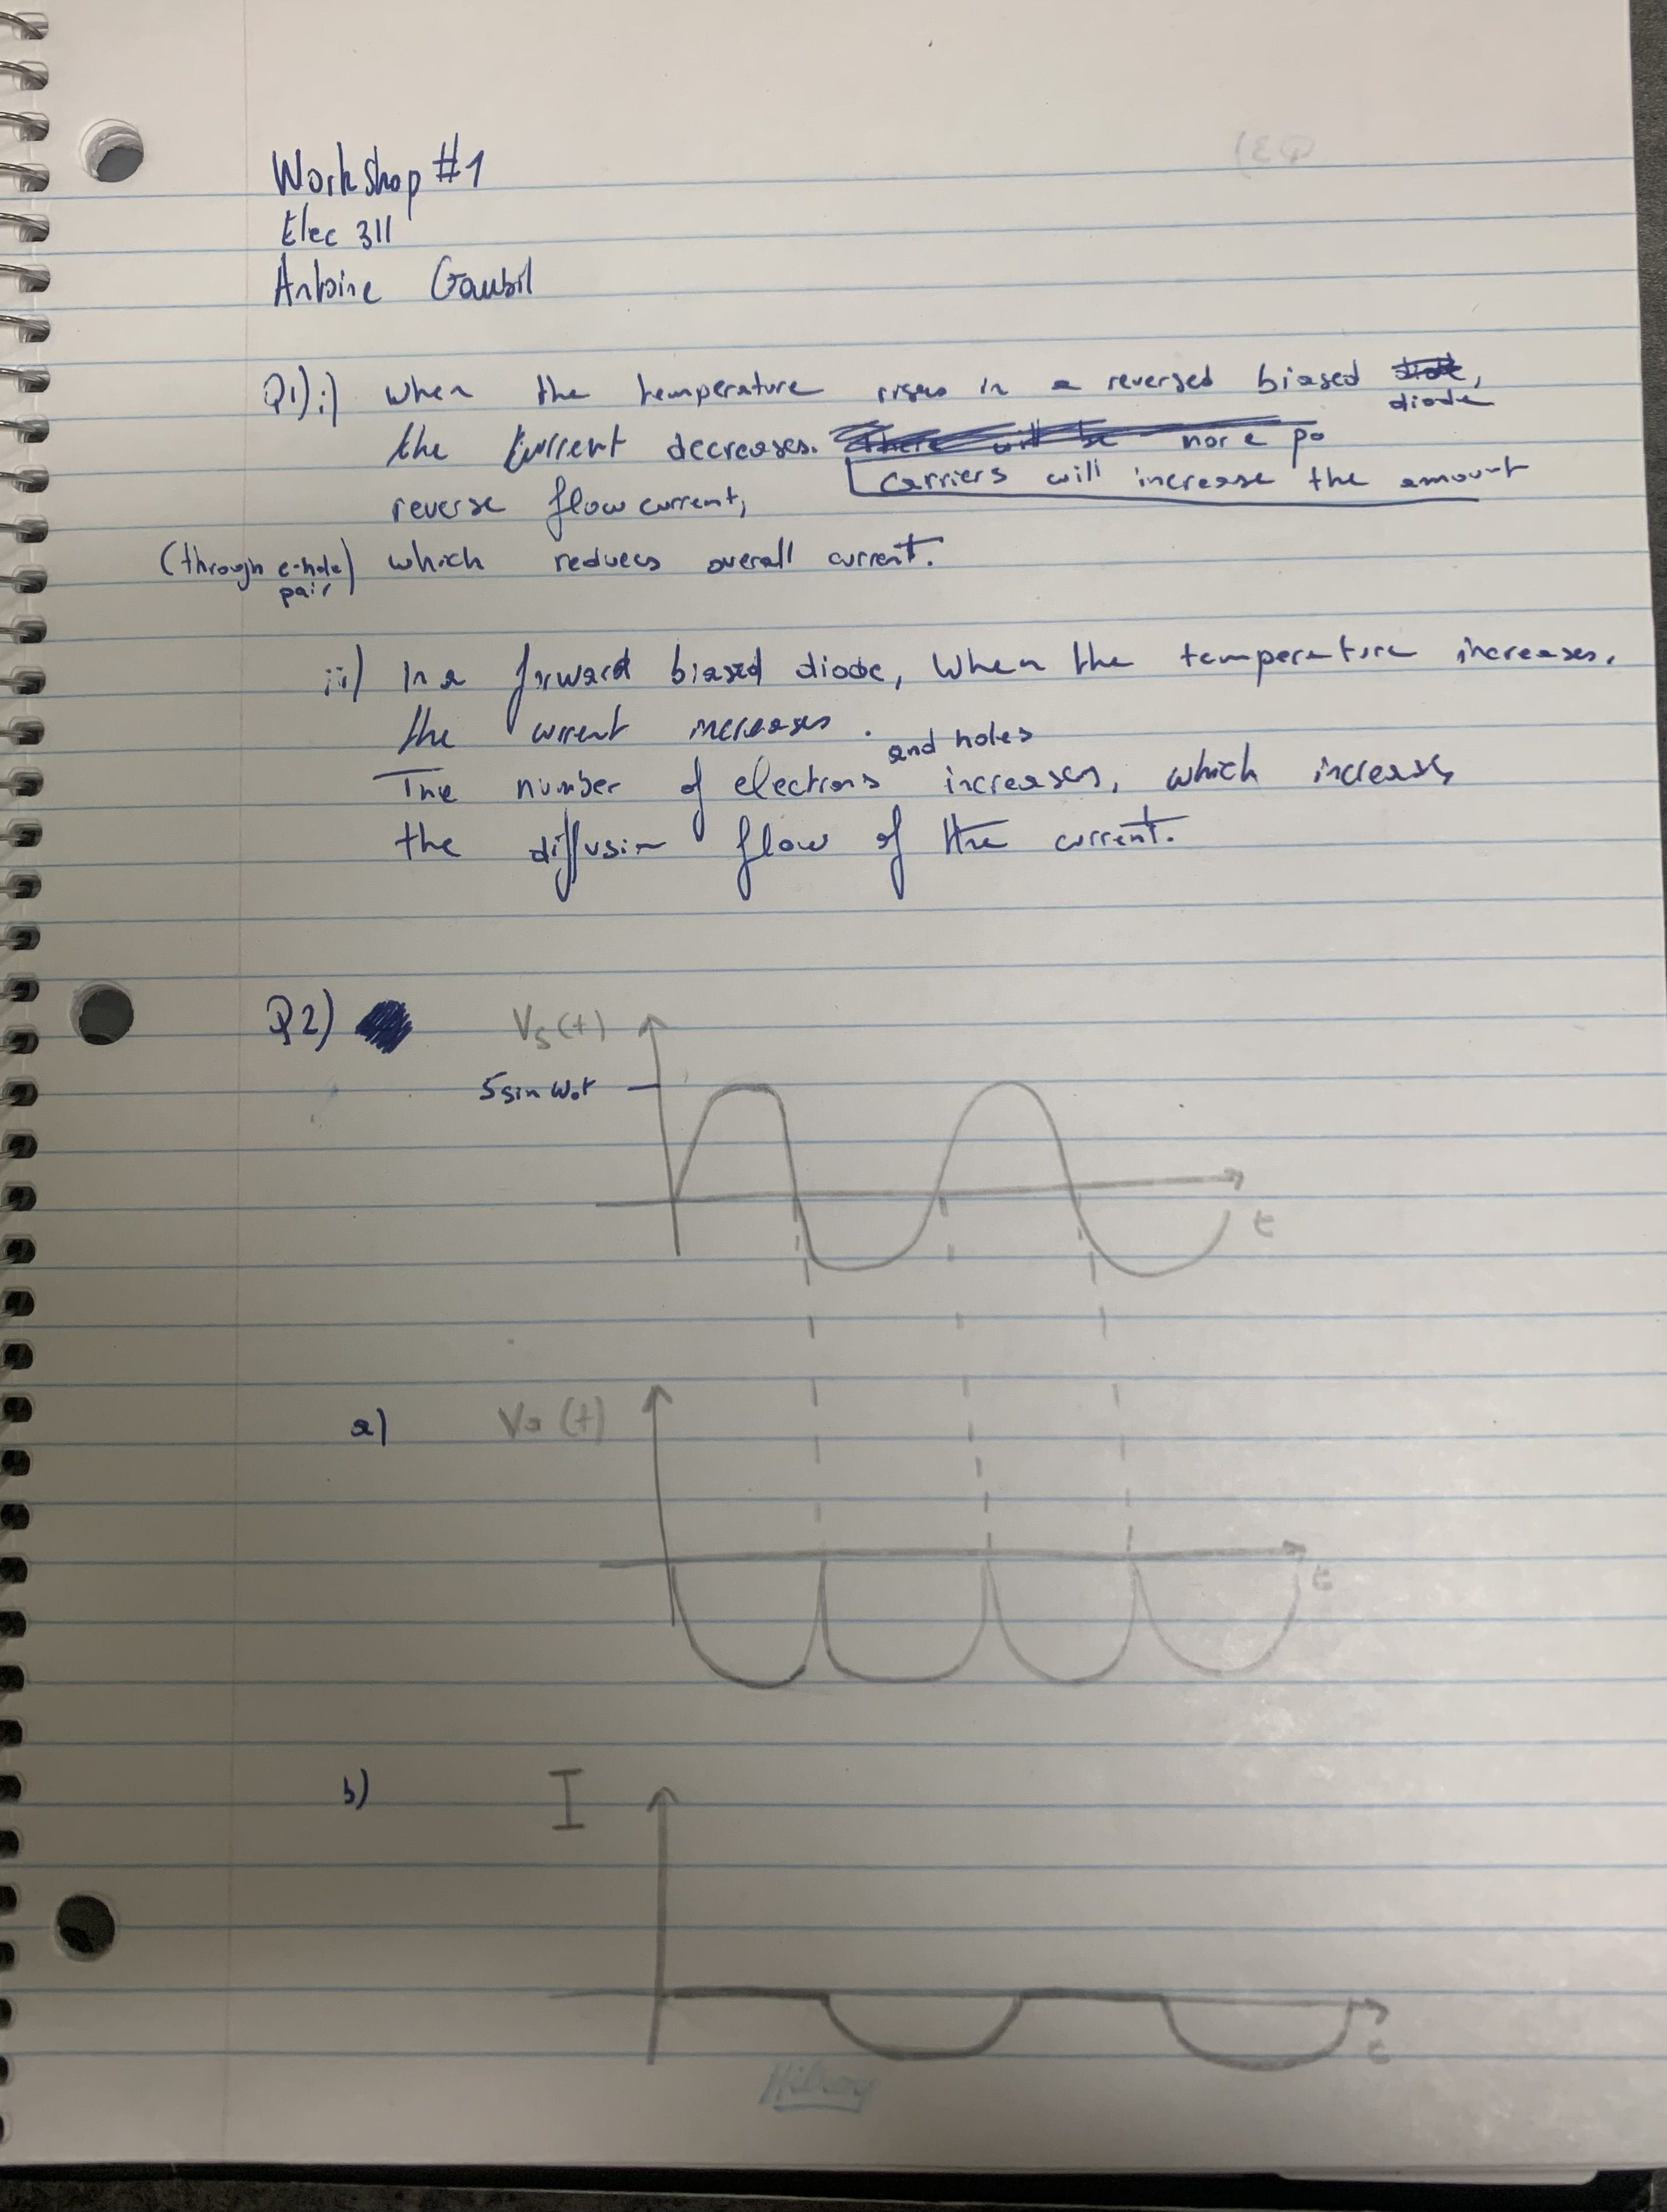 Q3)
Workshop #1
Elec 311
Antoine Gaubil
Q1) i) When the temperature rises in a reversed biased diode,
diode
the current decreases. There will be more po
carriers will increase the amount
reverse flow current,
(through e-hole pair) which reduces overall current.
ii) In a forward biased diode, When the temperature increases.
the current increases.
The number of electrons and holes increases, which increases
the diffusion flow of the current.
Q2)
Vs(t)
5 sin ω₀t
t
a) Vo(t)
t
b) I
t
Hilroy